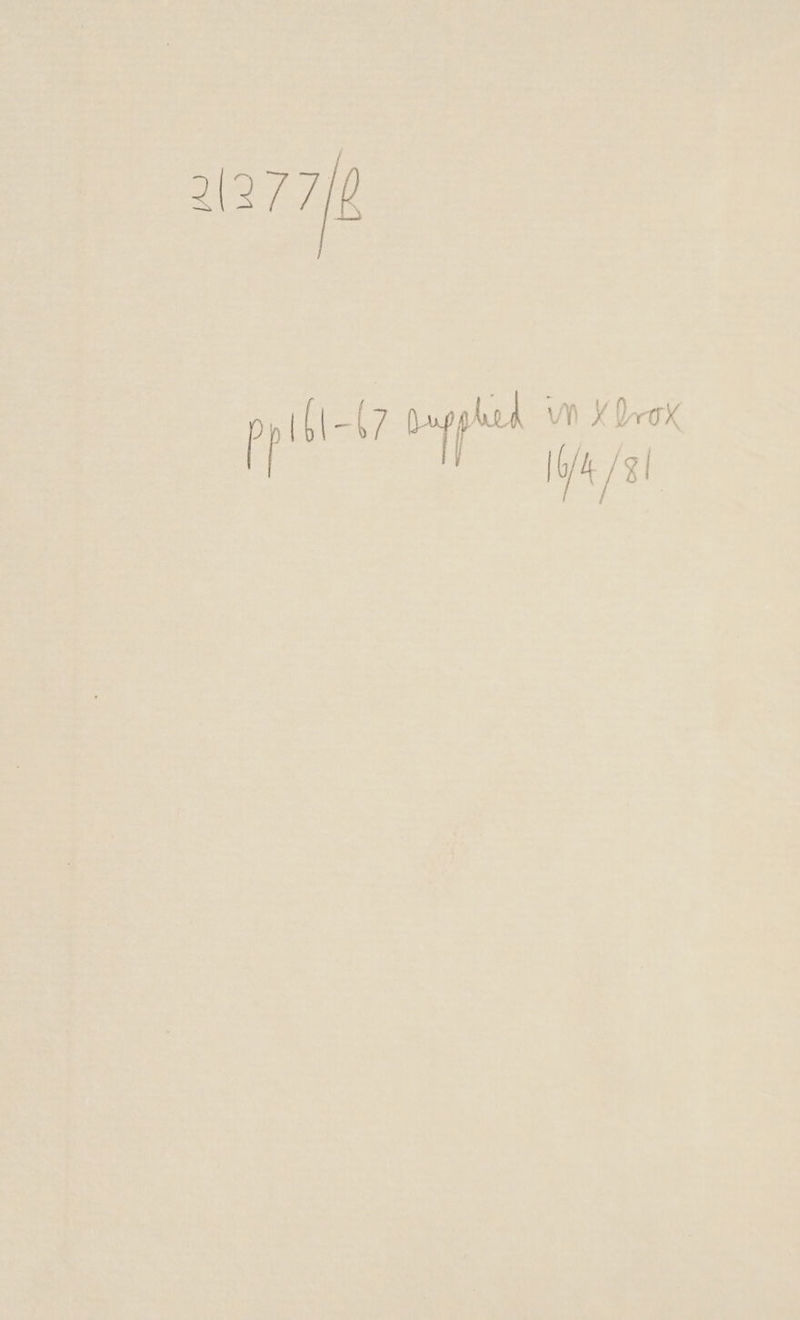 21277/B
pp161-67 supplied in xerox
16/4/81